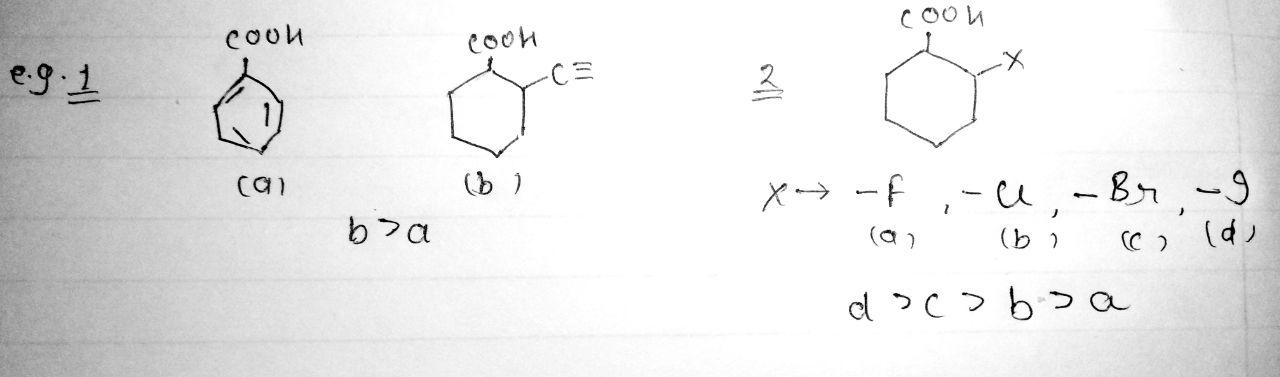 e.g. 1
COOH
(a)
COOH
C≡
(b)
b > a
2
COOH
X
X → -F, -Cl, -Br, -I
(a) (b) (c) (d)
d > c > b > a